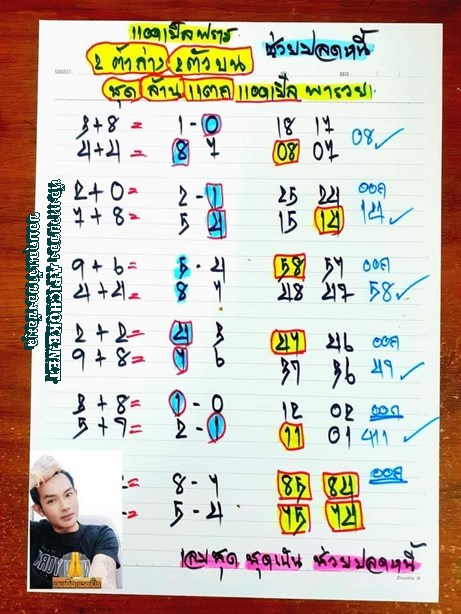 แอปเปิ้ลพารวย ช่วยปลดหนี้
2 ตัวล่าง 2 ตัวบน
ชุด ล้านแตก แอปเปิ้ล พารวย
3+8= 1-0 18 17
4+4= 8 7 08 07 08
2+0= 2-1 25 24 ออก
7+8= 5 4 15 14 14
9+6= 5-4 58 57 ออก
4+4= 8 7 48 47 58
2+2= 4 3 47 46 ออก
9+8= 7 6 37 36 47
3+8= 1-0 12 02 ออก
5+7= 2-1 11 01 411
8-7 85 84 ออก
5-4 75 74
เลขชุด ชุดเน้น ช่วยปลดหนี้